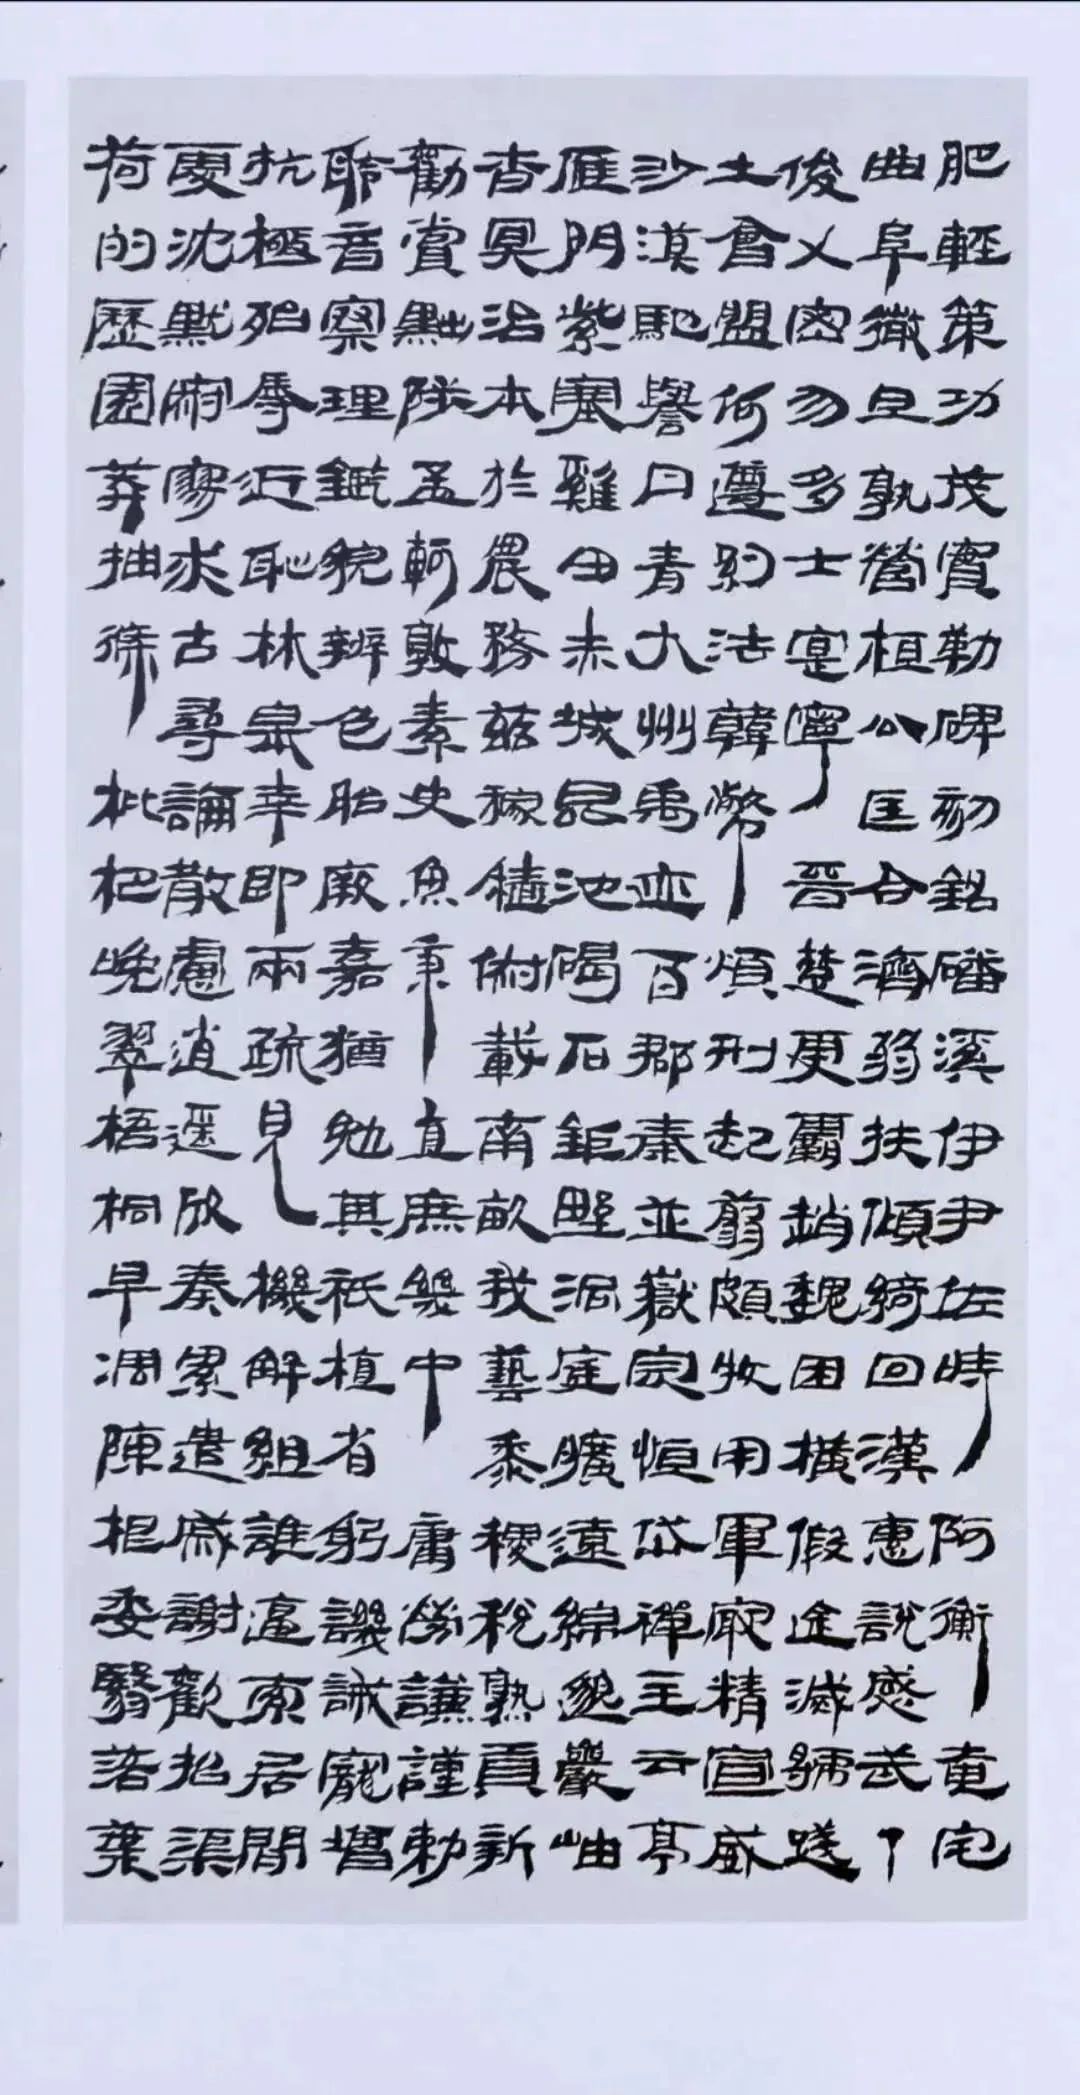 肥輕策功茂實勒碑刻銘磻溪伊尹佐時阿衡奄宅
曲阜微旦孰營桓公匡合濟弱扶傾綺回漢惠說感武丁
俊乂密勿多士寔寧晉楚更霸趙魏困橫假途滅虢踐
土會盟何遵約法韓弊煩刑起翦頗牧用軍最精宣威
沙漠馳譽丹青九州禹迹百郡秦並嶽宗恒岱禪主云亭
雁門紫塞雞田赤城昆池碣石鉅野洞庭曠遠綿邈巖岫
杳冥治本於農務茲稼穡俶載南畝我藝黍稷稅熟貢新
勸賞黜陟孟軻敦素史魚秉直庶幾中庸勞謙謹勅
聆音察理鑑貌辨色貽厥嘉猷勉其祗植省躬譏誡寵增
抗極殆辱近恥林皋幸即兩疏見機解組誰逼索居閒
處沈默寂寥求古尋論散慮逍遥欣奏累遣慼謝歡招渠
荷的歷園莽抽條枇杷晚翠梧桐早凋陳根委翳落葉